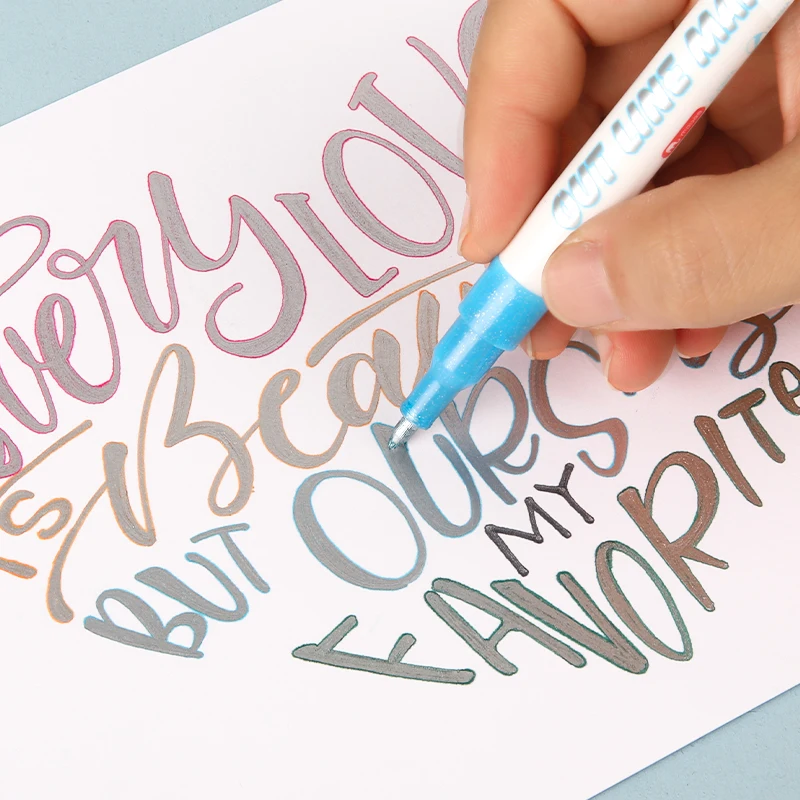 Every LOV
IS Beau
BUT OURS
MY
FAVORITE
OUT LINE MA